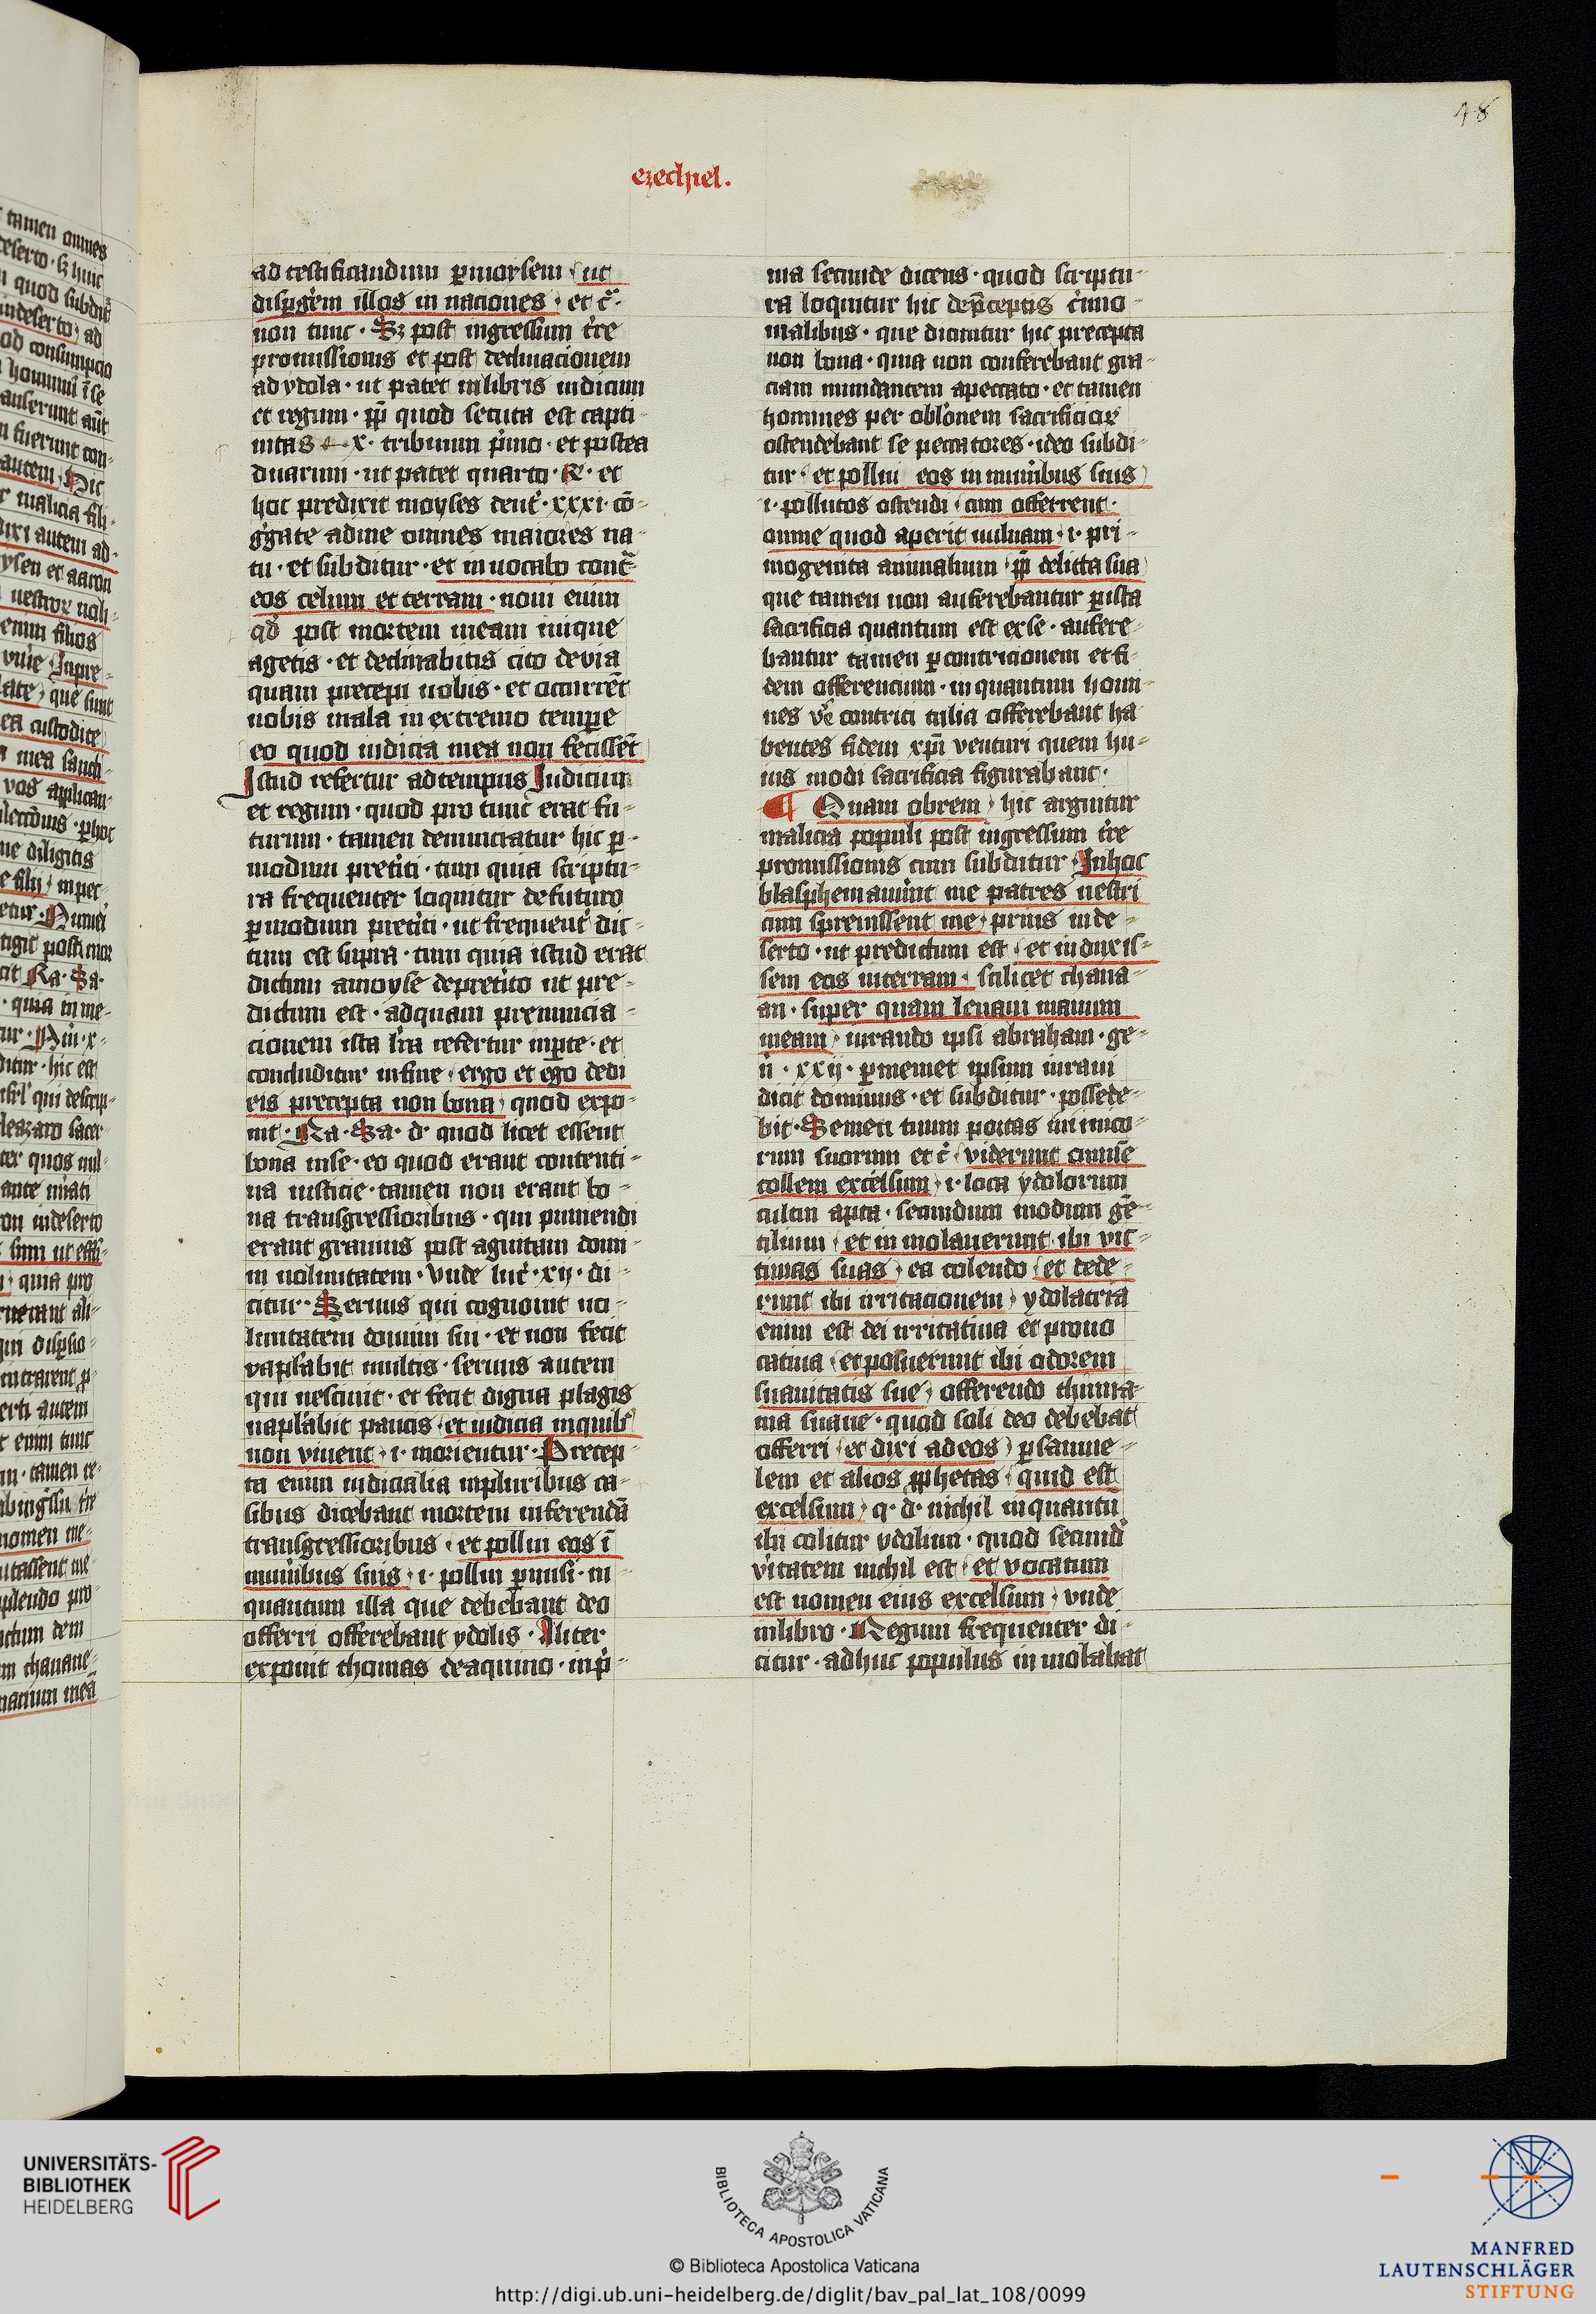 48
ezechiel.
ad testificandum ꝑmoysem ut
disꝑgerem illos in naciones et c̄.
non tunc · Sꝫ post ingressum tr̄e
promissionis et post declinacionem
ad ydola · ut patet in libris iudicum
et regum · ꝓp̄ quod secuta est capti-
uitas x · tribuum primo · et postea
duarum · ut patet quarto · R · et
hoc predixit moyses deut̄ · xxxi · cō-
gͬgate adme omnes maiores na-
tu · et subditur · et inuocabo contͣ
eos celum et terram · noui enim
qd̄ post mortem meam inique
agetis · et declinabitis cito devia
quam precepi uobis · et occurrēt
uobis mala in extremo tempore
eo quod iudicia mea non fecissēt
Istud refertur adtempus Iudicum
et regum · quod pro tunc erat fu-
turum · tamen denunciatur hic ꝑ-
modum pret̄iti · tum quia scriptu-
ra frequenter loquitur defuturo
ꝑmodum pret̄iti · ut frequent̄ dic-
tum est supra · tum quia istud erat
dictum amoyse depret̄ito ut pre-
dictum est · adquam prenuncia-
cionem ista lr̄a refertur inꝑte · et
concluditur infine ergo et ego dedi
eis precepta non bona quod expo-
nit · Ra · Sa · d · quod licet essent
bona inse · eo quod erant contenti-
ua iusticie · tamen non erant bo-
na transgressioribus · qui puniendi
erant grauius post agnitam domi-
ni uoluntatem · Vnde luc̄ · xij · di-
citur · Seruus qui cognouit uo-
luntatem domini sui · et non fecit
vapl̄abit multis · seruus autem
qui nesciuit · et fecit digna plagis
uapl̄abit paucis et iudicia inquibꝰ
non viuent · i · morientur · Precep
ta enim iudicialia inpluribus ca-
sibus dicebant mortem inferendā
transgressioribus · et pollui eos ī
munībus suis · i · pollui ꝑmisi · in
quantum illa que debebant deo
offerri offerebant ydolis · Aliter
exponit thomas deaquino · inpͥ-
ma secunde dicens · quod scriptu-
ra loquitur hic dep̄ceptis cͥmo-
nialibus · que dicuntur hic precepta
non bona · quia non conferebant gra-
ciam mundantem apeccato · et tamen
homines per obl̄onem sacrificioꝝ
ostendebant se peccatores · ideo subdi-
tur et pollui eos in munībus suis
i · pollutos ostendi cum offerrent ·
omne quod aperit uuluam · i · pri-
mogenita animalium ꝓp̄ delicta sua
que tamen non auferebantur ꝑista
sacrificia quantum est exse · aufere-
bantur tamen ꝑcontricionem et fi-
dem offerencium · inquantum homi-
nes ve contriti talia offerebant ha
bentes fidem xp̄i venturi quem hu-
ius modi sacrificia figurabant ·
¶ Quam obrem hic arguitur
malicia populi post ingressum tr̄e
promissionis cum subditur · Inhoc
blasphemauerunt me patres uestri
cum spreuissent me prius inde-
serto · ut predictum est · et induxis-
sem eos interram scilicet chana-
an · super quam leuaui manum
meam iurando ipsi abraham · ge-
n̄ · xxij · ꝑmemet ipsum iuraui
dicit dominus · et subditur · possede-
bit · Semen tuum portas inimico-
rum suorum et c̄ viderunt omnē
collem excelsum · i · loca ydolorum
cultui apta · secundum modum gē-
tilium et in molauerunt ibi vic-
timas suas ea colendo et dede-
runt ibi irritacionem ydolatria
enim est dei irritatiua et prouo
catiua et posuerunt ibi odorem
suauitatis sue offerendo thimia-
ma suaue · quod soli deo debebat
offerri et dixi adeos ꝑsamue-
lem et alios ꝓphetas quid est
excelsum · q · d · nichil inquantū
ibi colitur ydolum · quod secundū
vͥtatem nichil est et vocatum
est nomen eius excelsum vnde
inlibro · Regum frequenter di-
citur · adhuc populus in molabat
UNIVERSITÄTS-
BIBLIOTHEK
HEIDELBERG
BIBLIOTECA APOSTOLICA VATICANA
© Biblioteca Apostolica Vaticana
http://digi.ub.uni-heidelberg.de/diglit/bav_pal_lat_108/0099
MANFRED
LAUTENSCHLÄGER
STIFTUNG